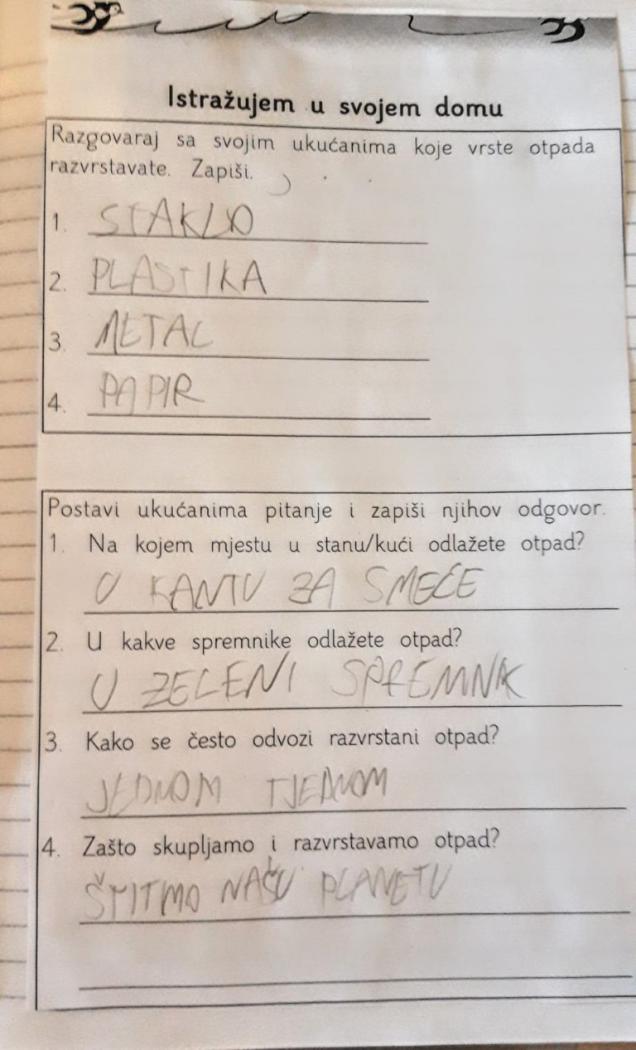 Istražujem u svojem domu
Razgovaraj sa svojim ukućanima koje vrste otpada
razvrstavate. Zapiši.
1. STAKLO
2. PLASTIKA
3. METAL
4. PAPIR
Postavi ukućanima pitanje i zapiši njihov odgovor.
1. Na kojem mjestu u stanu/kući odlažete otpad?
U KANTU ZA SMEĆE
2. U kakve spremnike odlažete otpad?
U ZELENI SPREMNIK
3. Kako se često odvozi razvrstani otpad?
JEDNOM TJEDNOM
4. Zašto skupljamo i razvrstavamo otpad?
ŠTITMO NAŠU PLANETU